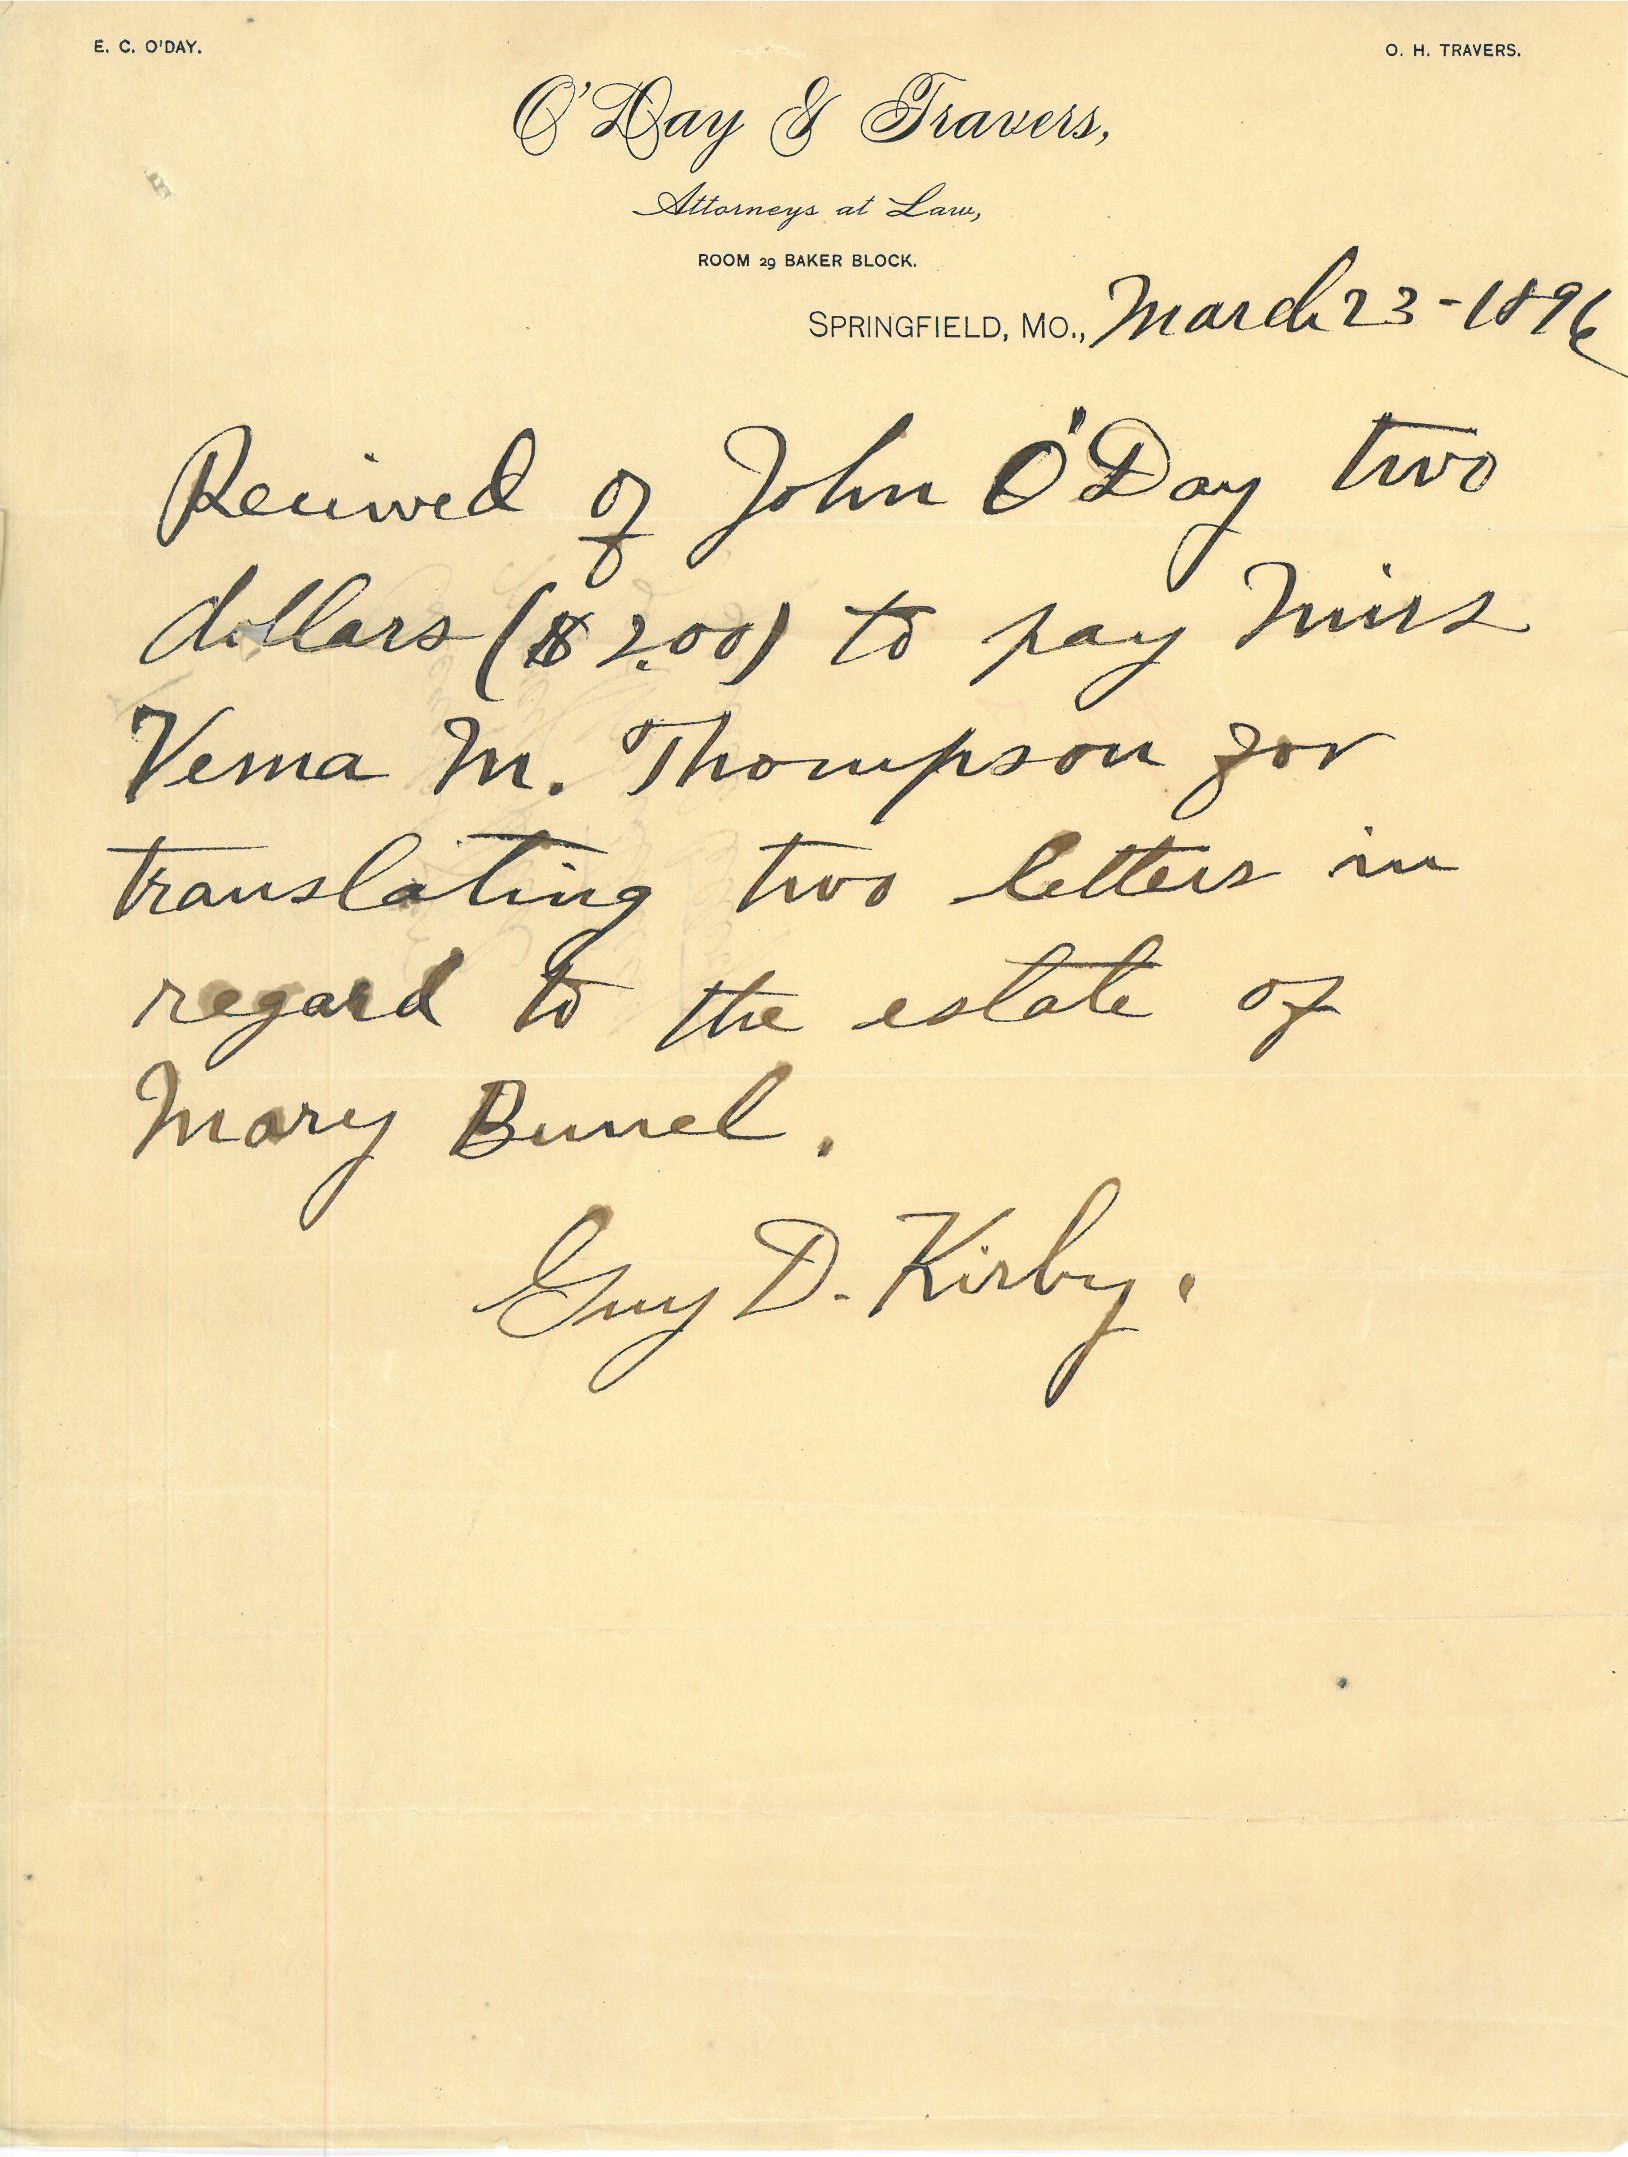 E. C. O'DAY.
O. H. TRAVERS.
O'Day & Travers,
Attorneys at Law,
ROOM 29 BAKER BLOCK.
SPRINGFIELD, MO., March 23-1896
Received of John O'Day two
dollars ($2.00) to pay Miss
Verna M. Thompson for
translating two letters in
regard to the estate of
Mary Bunel.
Guy D. Kirby.